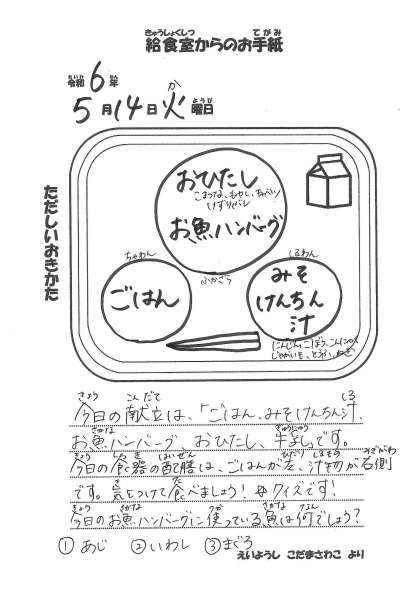 きゅうしょくしつ てがみ
給食室からのお手紙
れいわ ねん
令和6年
か ようび
5月14日火曜日
ただしいおきかた
おひたし
こまつな、もやし、ちゃパリ
けずりぶし
お魚ハンバーグ
ちゃわん
ごはん
ふかざら
しるわん
みそ
けんちん
汁
にんじん、ごぼう、こんにゃく
じゃがいも、とうふ、ねぎ
きょう こんだて しる
今日の献立は、「ごはん、みそけんちん汁、
さかな ぎゅうにゅう
お魚ハンバーグ、おひたし、牛乳」です。
きょう しょっき はいぜん ひだり しるもの みぎがわ
今日の食器の配膳は、ごはんが左、汁物が右側
き た
です。気をつけて食べましょう!クイズです!
きょう さかな つか さかな なん
今日のお魚ハンバーグに使っている魚は何でしょう?
①あじ ②いわし ③まぐろ
えいようし こだまさわこ より